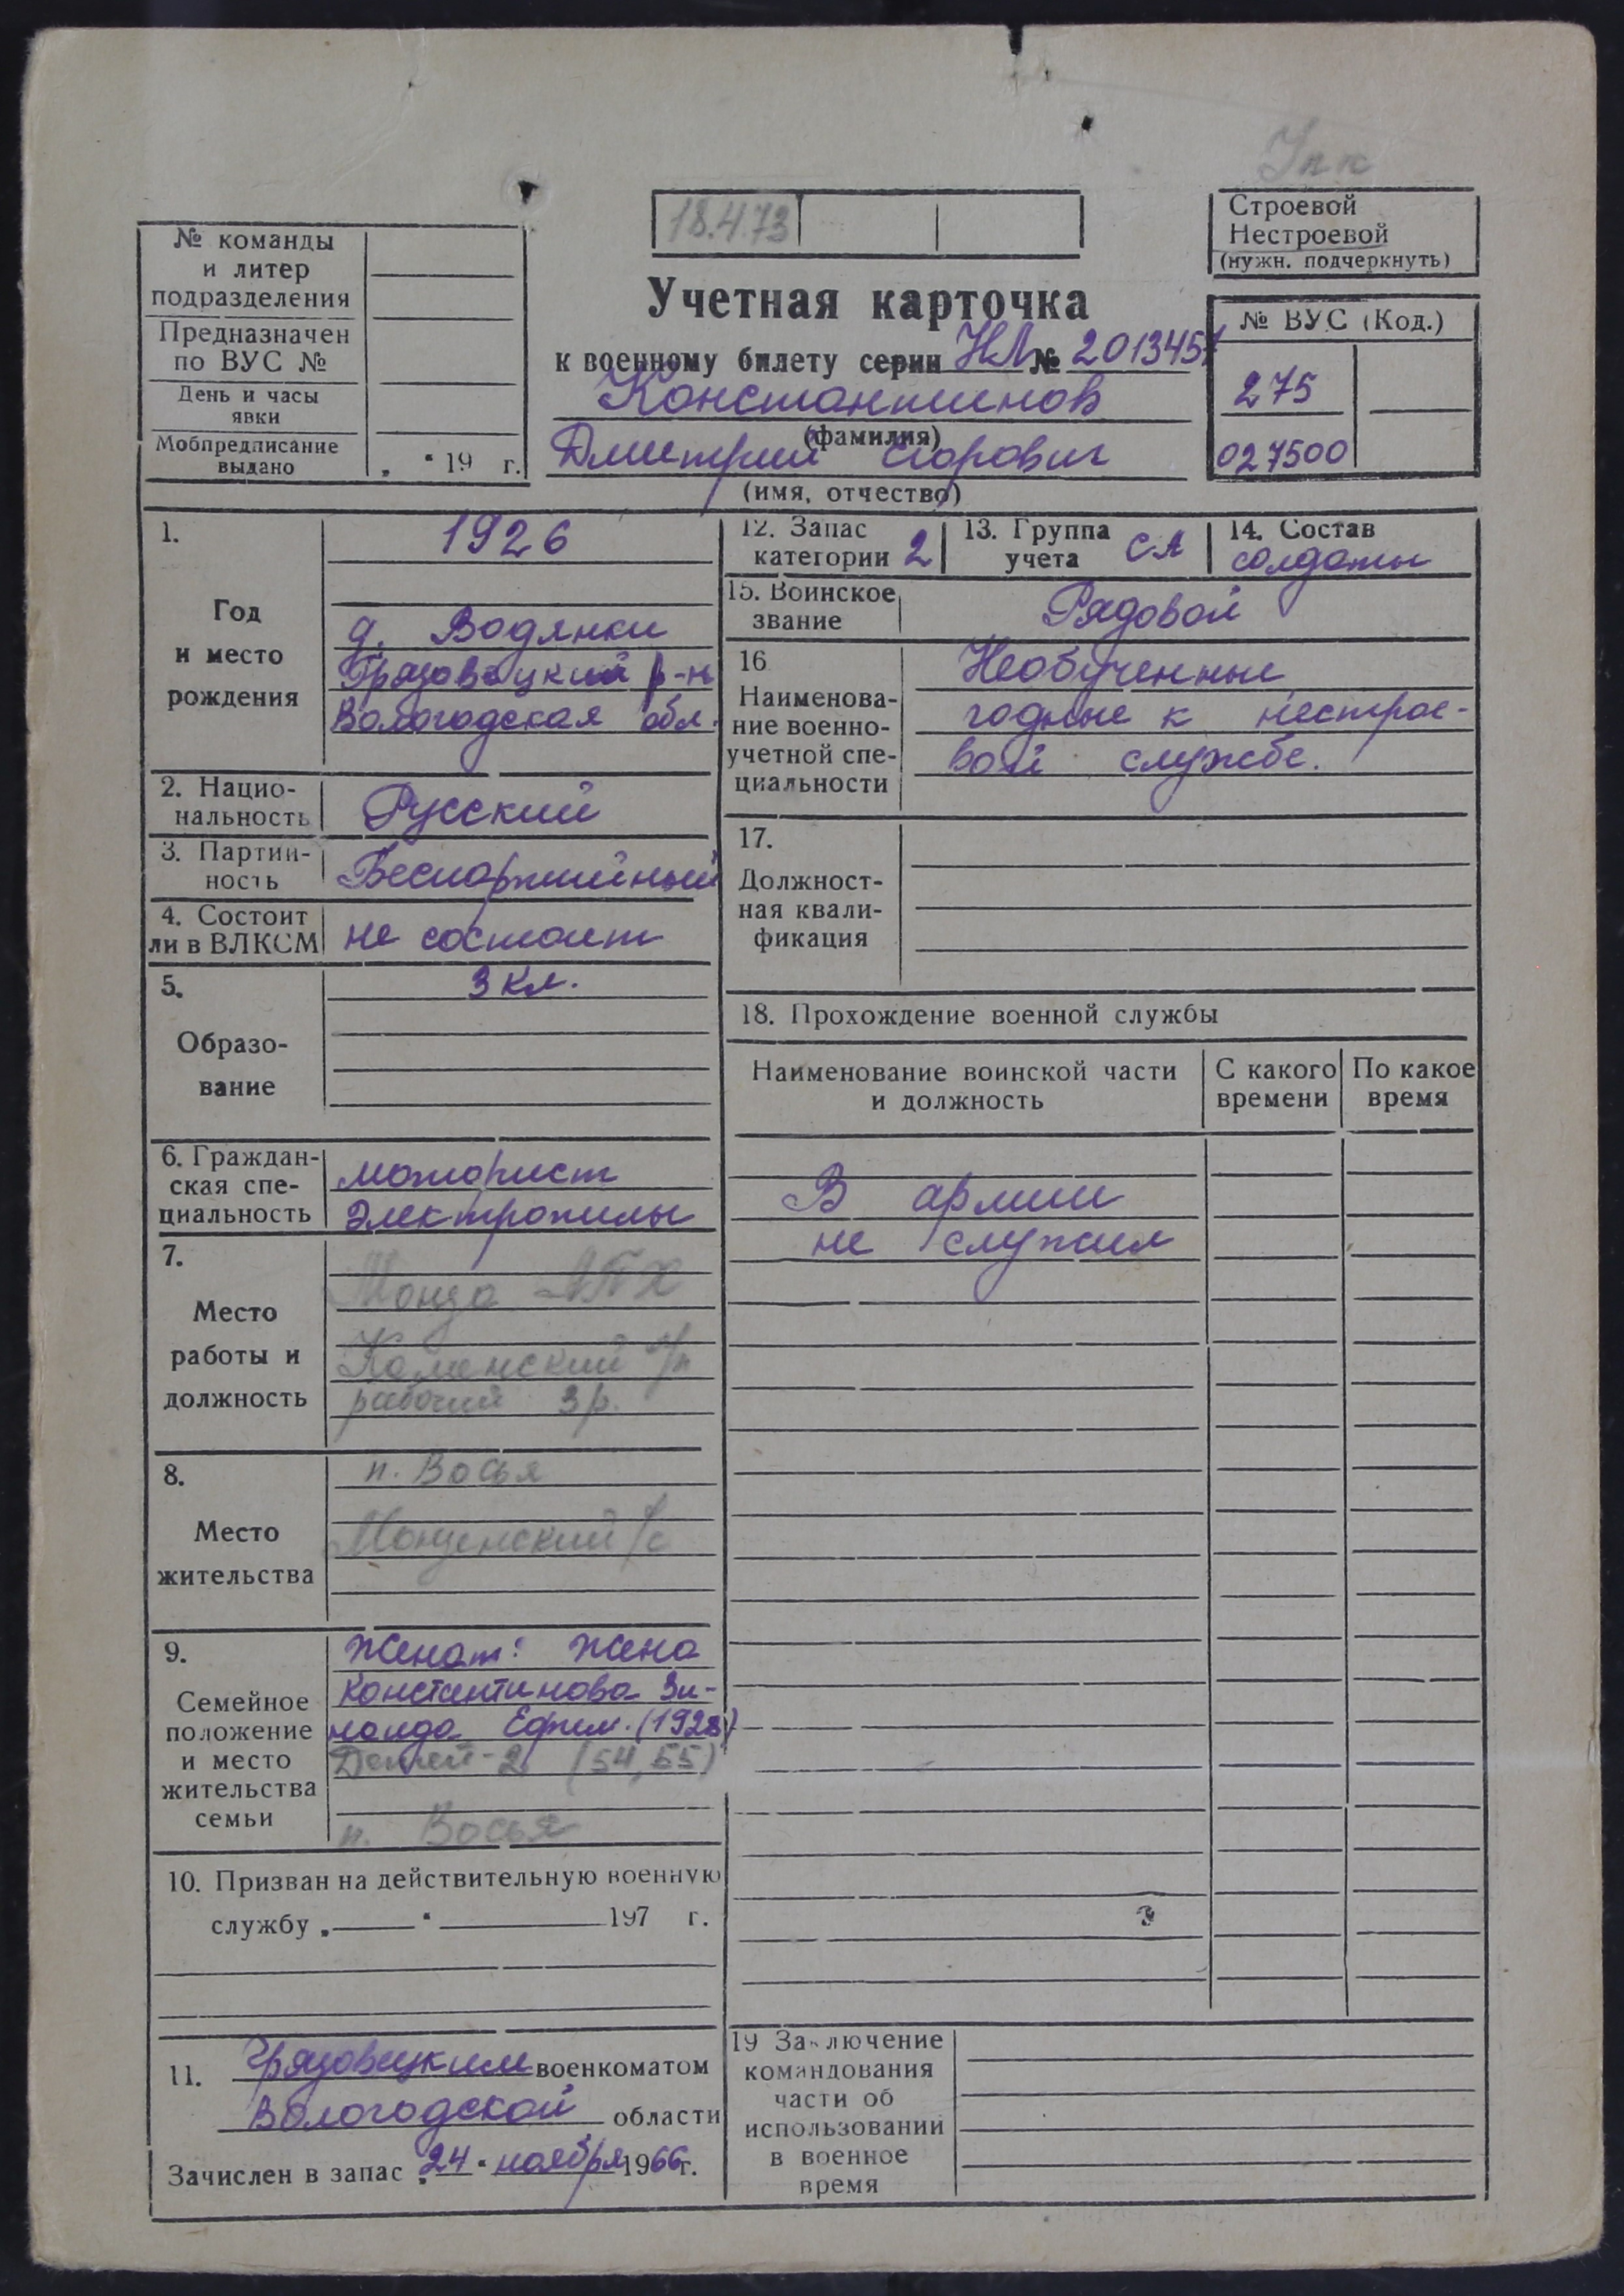 Упк
18.4.73
Строевой
Нестроевой
(нужн. подчеркнуть)
№ команды
и литер
подразделения
Предназначен
по ВУС №
День и часы
явки
Мобпредписание
выдано
„ “ 19 г.
Учетная карточка
к военному билету серии НЛ № 2013457
Константинов
(фамилия)
Дмитрий Егорович
(имя, отчество)
№ ВУС (Код.)
275
027500
1.
Год
и место
рождения
1926
д. Водянки
Грязовецкий р-н
Вологодская обл.
2. Нацио-
нальность
Русский
3. Партий-
ность
Беспартийный
4. Состоит
ли в ВЛКСМ
не состоит
5.
Образо-
вание
3 кл.
6. Граждан-
ская спе-
циальность
моторист
электропилы
7.
Место
работы и
должность
Монза ЛПХ
Каменский л/п
рабочий 3 р.
8.
Место
жительства
п. Восья
Монзенский с/с
9.
Семейное
положение
и место
жительства
семьи
Женат: жена
Константинова Зи-
наида Ефим. (1928)
Детей-2 (54, 55)
п. Восья
10. Призван на действительную военную
службу „ “ 197 г.
11. Грязовецким военкоматом
Вологодской области
Зачислен в запас „24“ ноября 1966 г.
12. Запас
категории 2
13. Группа
учета СА
14. Состав
солдаты
15. Воинское
звание
Рядовой
16
Наименова-
ние военно-
учетной спе-
циальности
Необученные
годные к нестрое-
вой службе.
17.
Должност-
ная квали-
фикация
18. Прохождение военной службы
Наименование воинской части
и должность
С какого
времени
По какое
время
В армии
не служил
19 Заключение
командования
части об
использовании
в военное
время